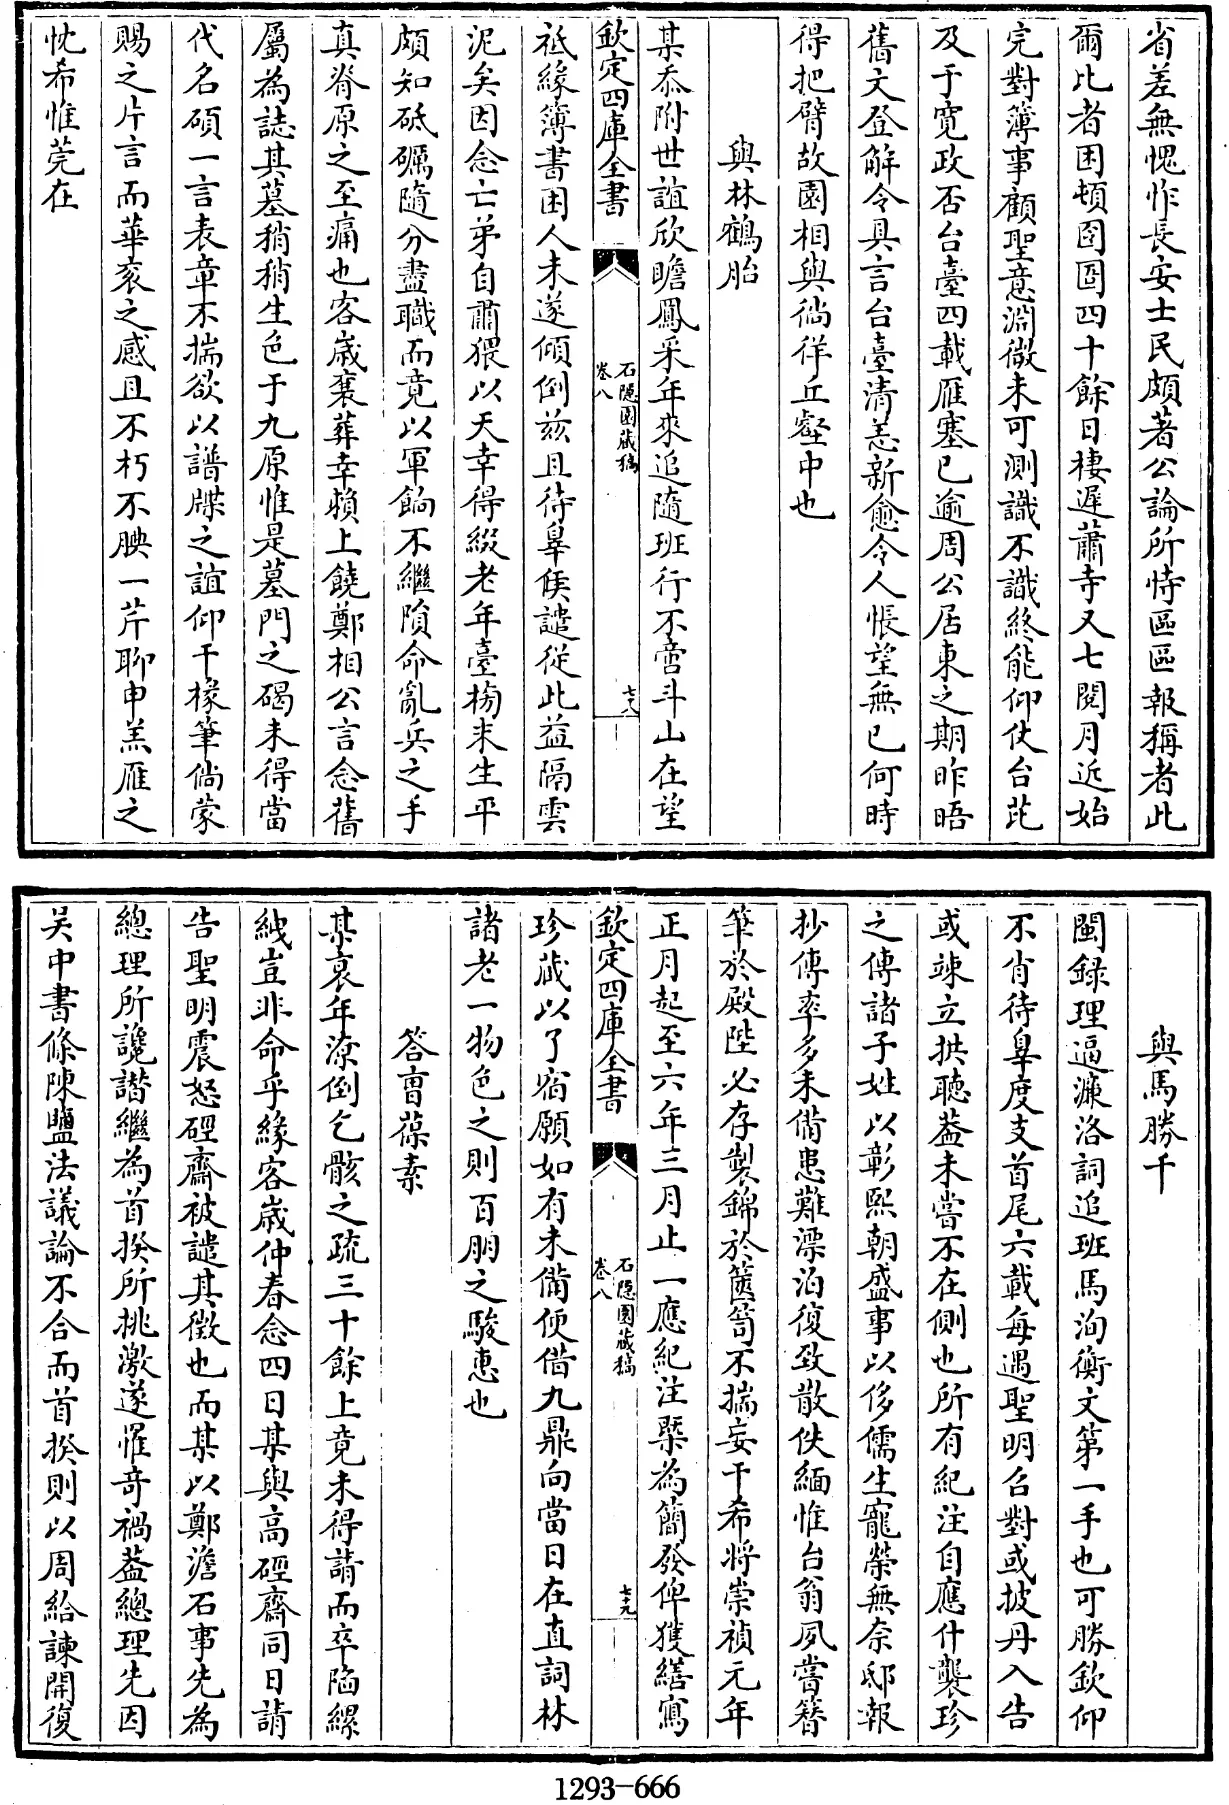 省差無愧怍長安士民頗著公論所恃區區報稱者此
爾比者困頓囹圄四十餘日棲遲蕭寺又七閱月近始
完對簿事顧聖意淵微未可測識不識終能仰仗台芘
及于寛政否台臺四載雁塞已逾周公居東之期昨晤
舊文登解令具言台臺清恙新愈令人悵望無已何時
得把臂故園相與徜徉丘壑中也
與林鶴胎
某忝附世誼欣瞻鳳采年來追隨班行不啻斗山在望
欽定四庫全書
石隠園藏稿
卷八
七八
祗緣簿書困人未遂傾倒兹且待辠俟譴從此益隔雲
泥矣因念亡弟自肅猥以天幸得綴老年臺榜末生平
頗知砥礪隨分盡職而竟以軍餉不繼隕命亂兵之手
真脊原之至痛也客歲襄葬幸賴上饒鄭相公言念舊
屬為誌其墓稍稍生色于九原惟是墓門之碣未得當
代名碩一言表章不揣欲以譜牒之誼仰干椽筆倘蒙
賜之片言而華衮之感且不朽不腆一芹聊申羔雁之
忱希惟莞在
與馬勝千
閩録理逼濂洛詞追班馬洵衡文第一手也可勝欽仰
不肖待辠度支首尾六載每遇聖明召對或披丹入告
或竦立拱聽葢未嘗不在側也所有紀注自應什襲珍
之傳諸子姓以彰熙朝盛事以侈儒生寵榮無奈邸報
抄傳率多未備患難漂泊復致散佚緬惟台翁夙嘗簪
筆於殿陛必存製錦於篋笥不揣妄干希將崇禎元年
正月起至六年三月止一應紀注槩為簡發俾獲繕寫
欽定四庫全書
石隠園藏稿
卷八
七十九
珍藏以了宿願如有未備便借九鼎向當日在直詞林
諸老一物色之則百朋之駿惠也
答曺葆素
某衰年潦倒乞骸之疏三十餘上竟未得請而卒陷縲
絏豈非命乎緣客歲仲春念四日某與高硜齋同日請
告聖明震怒硜齋被譴其徵也而某以鄭澹石事先為
總理所讒譖繼為首揆所挑激遂罹奇禍葢總理先因
吴中書條陳鹽法議論不合而首揆則以周給諫開復
1293-666